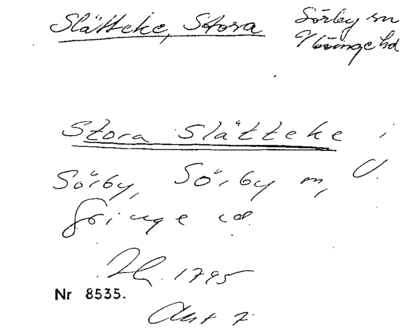 Slätteke, Stora
Sörby sn
Göinge hd
Stora Slätteke i
Sörby, Sörby sn, V.
Göinge hd.
1795
Nr 8535.
Akt 7.